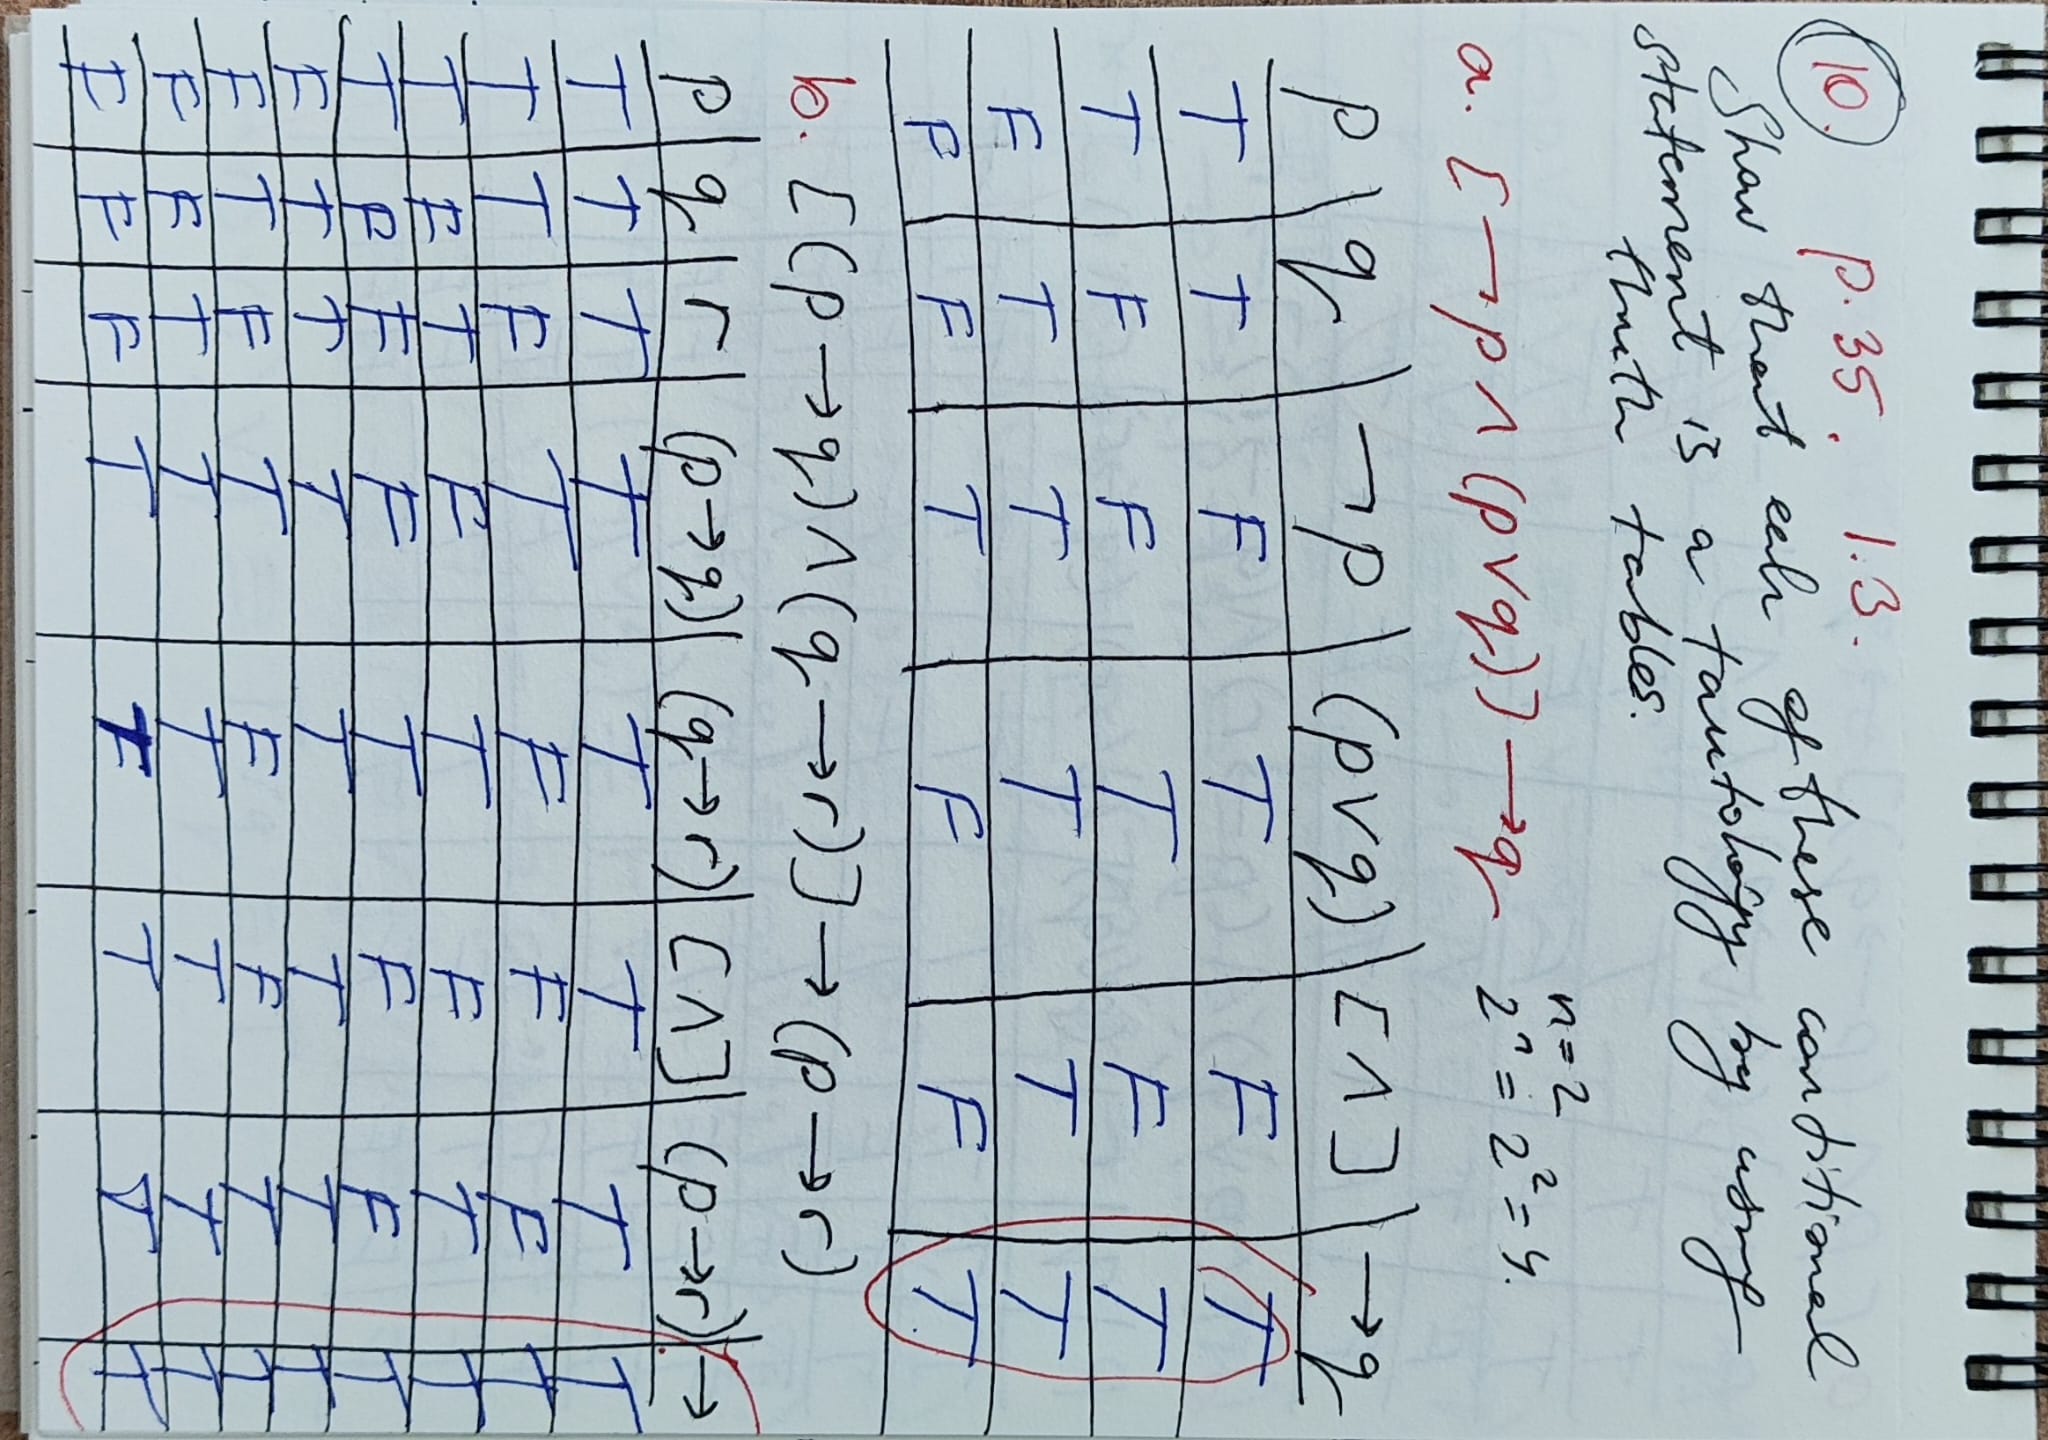 10. p. 35. 1.3.
Show that each of these conditional
statement is a tautology by using
truth tables.
a. [¬p ∧ (p ∨ q)] → q
n=2
2ⁿ = 2² = 4.
p q ¬p (p∨q) [∧] → q
T T F T F T
T F F T F T
F T T T T T
F F T F F T
b. [(p → q) ∧ (q → r)] → (p → r)
p q r (p→q) (q→r) [∧] (p→r) →
T T T T T T T T
T T F T F F F T
T F T F T F T T
T F F F T F F T
F T T T T T T T
F T F T F F T T
F F T T T T T T
F F F T T T T T